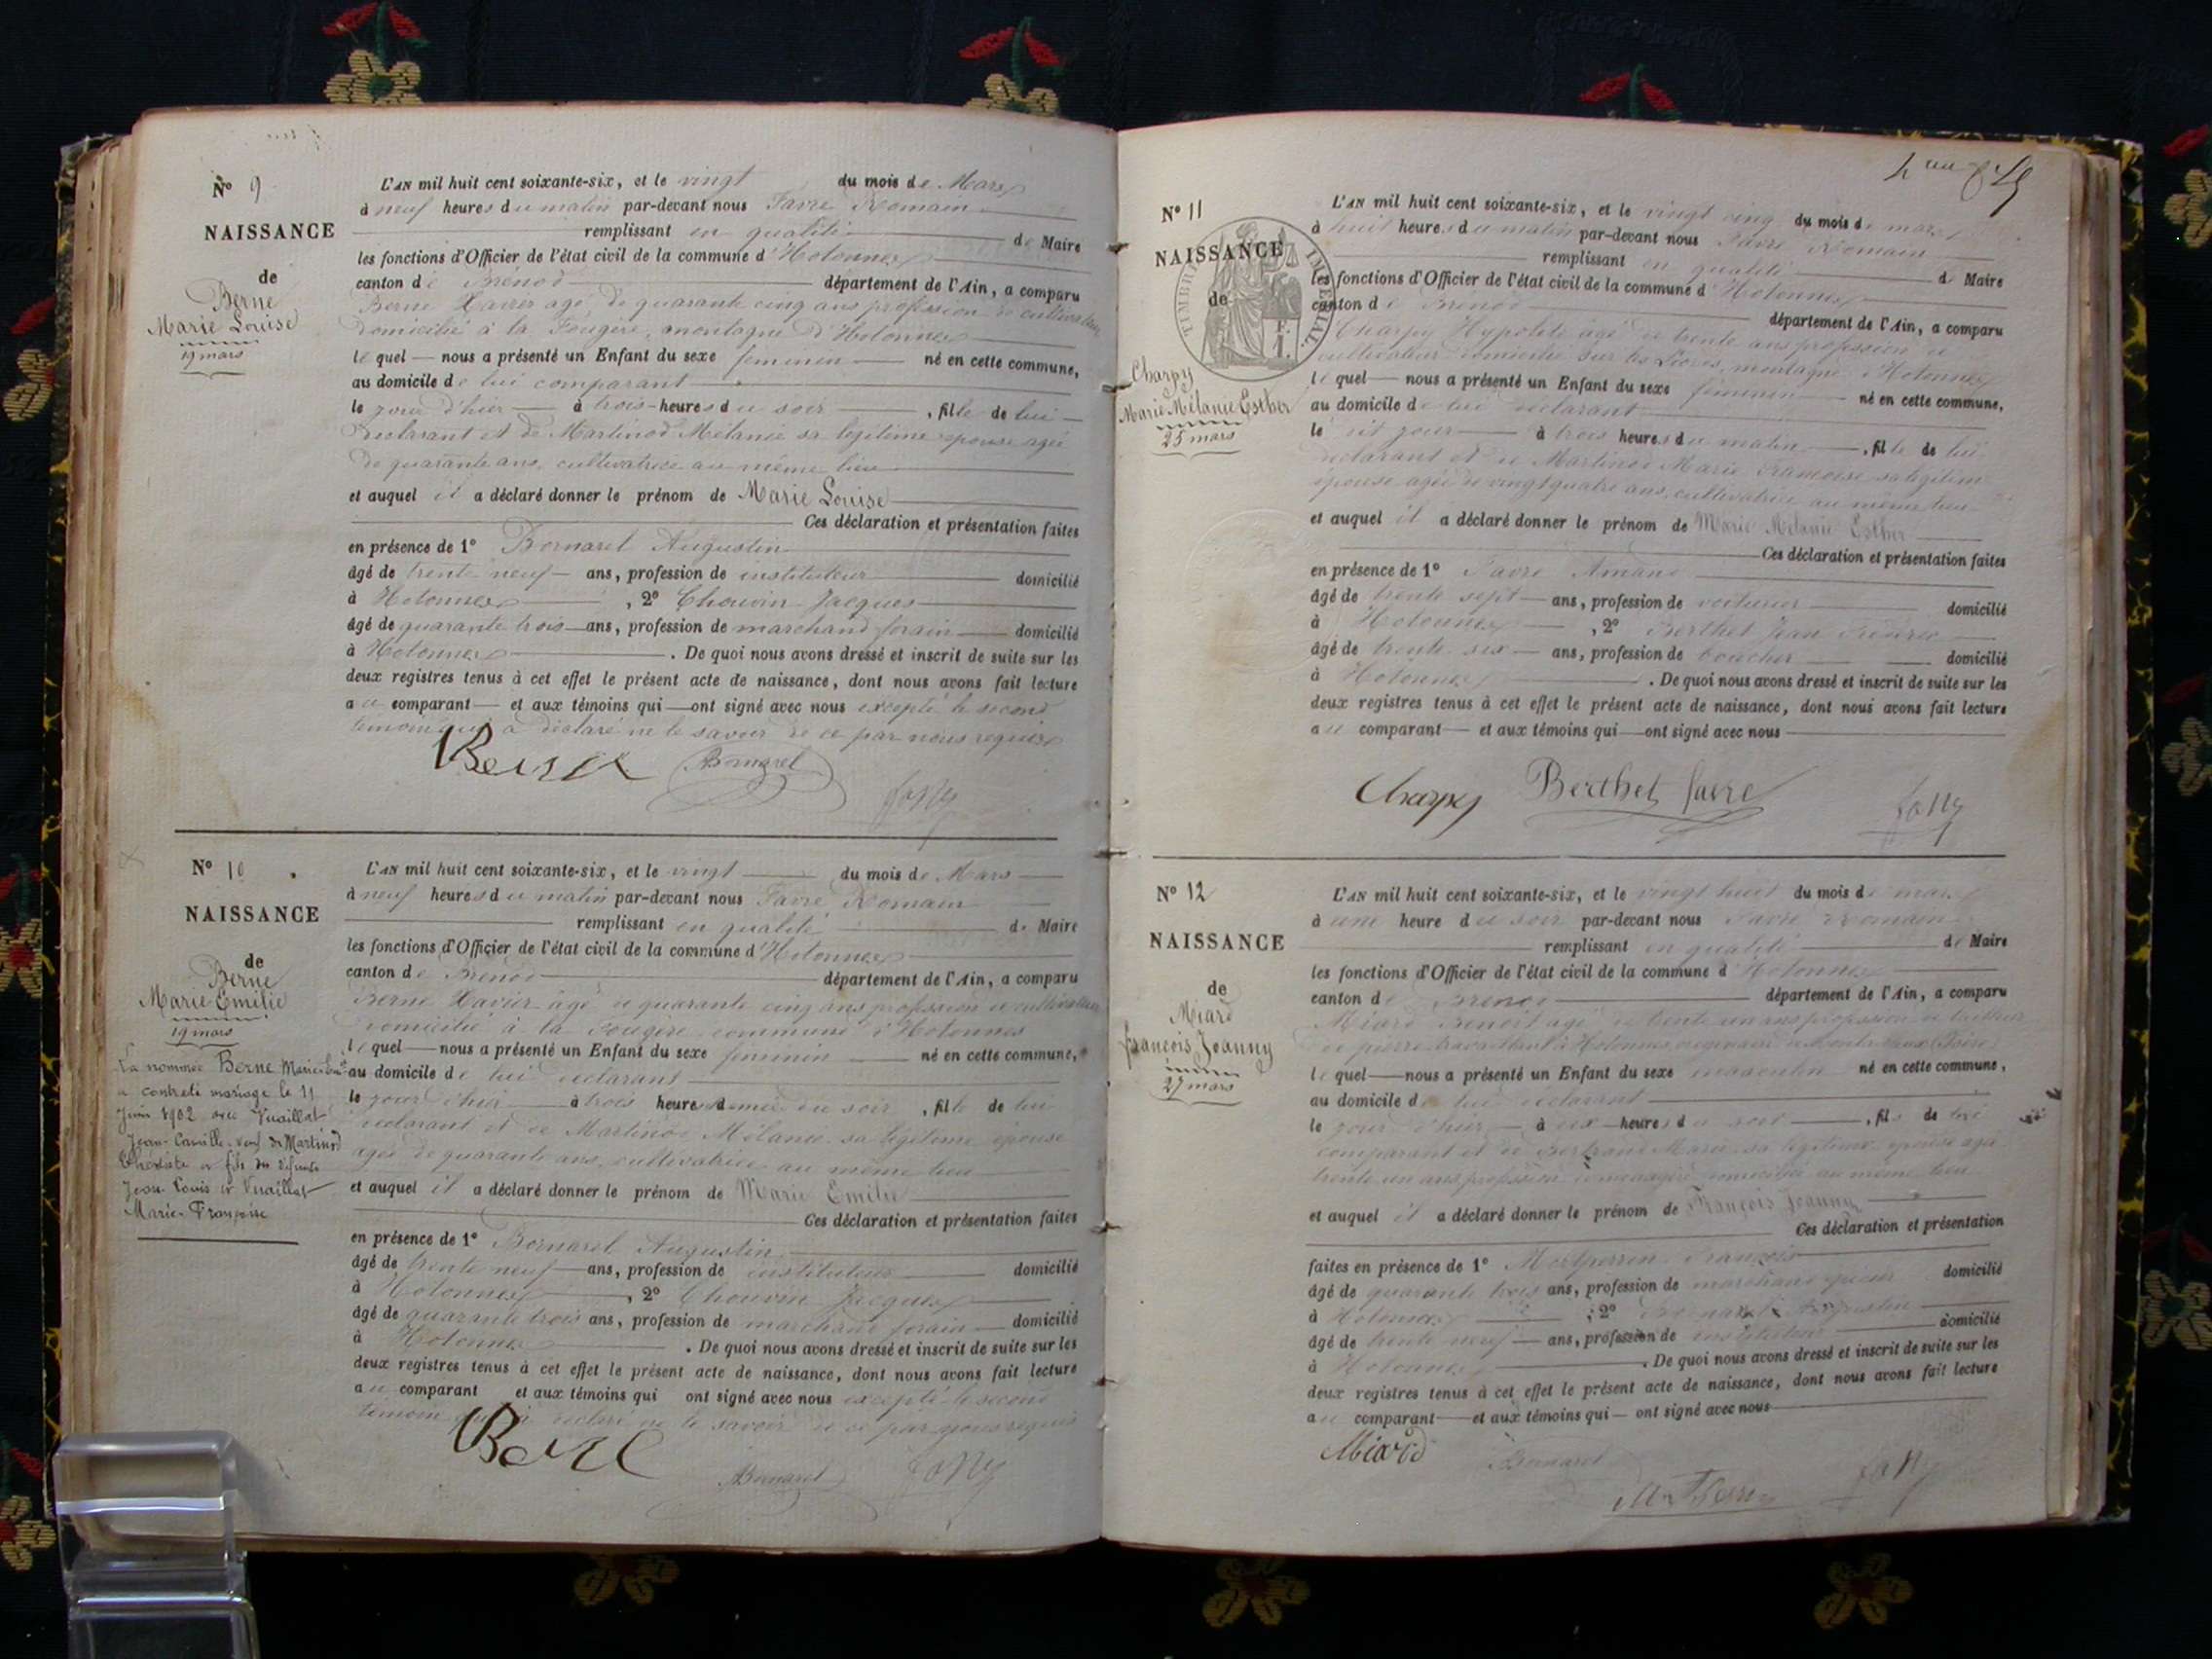 N° 9
NAISSANCE
de
Berne
Marie Louise
19 mars
L'AN mil huit cent soixante-six, et le vingt du mois de Mars
à neuf heures du matin par-devant nous Favre Romain
remplissant en qualité de Maire
les fonctions d'Officier de l'état civil de la commune d'Hotonnes
canton de Brénod département de l'Ain, a comparu
Berne Xavier agé de quarante cinq ans profession de cultivateur
domicilié à la Fougère, montagne d'Hotonnes
lequel nous a présenté un Enfant du sexe féminin né en cette commune,
au domicile de lui comparant
le jour d'hier à trois heures du soir, fille de lui
déclarant et de Martinod Mélanie sa légitime épouse agée
de quarante ans, cultivatrice au même lieu
et auquel il a déclaré donner le prénom de Marie Louise
Ces déclaration et présentation faites
en présence de 1° Bornarel Augustin
âgé de trente neuf ans, profession de instituteur domicilié
à Hotonnes, 2° Chouvin Jacques
âgé de quarante trois ans, profession de marchand forain domicilié
à Hotonnes. De quoi nous avons dressé et inscrit de suite sur les
deux registres tenus à cet effet le présent acte de naissance, dont nous avons fait lecture
au comparant et aux témoins qui ont signé avec nous excepté le second
témoin qui a déclaré ne le savoir de ce par nous requis
Berne Bornarel
N° 10
NAISSANCE
de
Berne
Marie Emilie
19 mars
La nommée Berne Marie
a contracté mariage le 11
Juin 1902 avec Vuaillat
Jean-Camille veuf de Martinod
et fils de défunts
Jean Louis et Vuaillat
Marie-Françoise
L'AN mil huit cent soixante-six, et le vingt du mois de Mars
à neuf heures du matin par-devant nous Favre Romain
remplissant en qualité de Maire
les fonctions d'Officier de l'état civil de la commune d'Hotonnes
canton de Brénod département de l'Ain, a comparu
Berne Xavier âgé de quarante cinq ans profession de cultivateur
domicilié à la Fougère commune d'Hotonnes
lequel nous a présenté un Enfant du sexe féminin né en cette commune,
au domicile de lui déclarant
le jour d'hier à trois heures demie du soir, fille de lui
déclarant et de Martinod Mélanie sa légitime épouse
agée de quarante ans, cultivatrice au même lieu
et auquel il a déclaré donner le prénom de Marie Emilie
Ces déclaration et présentation faites
en présence de 1° Bornarel Augustin
âgé de trente neuf ans, profession de instituteur domicilié
à Hotonnes, 2° Chouvin Jacques
âgé de quarante trois ans, profession de marchand forain domicilié
à Hotonnes. De quoi nous avons dressé et inscrit de suite sur les
deux registres tenus à cet effet le présent acte de naissance, dont nous avons fait lecture
au comparant et aux témoins qui ont signé avec nous excepté le second
témoin qui a déclaré ne le savoir de ce par nous requis
Berne
Bornarel
N° 11
NAISSANCE
de
TIMBRE IMPÉRIAL
Charpy
Marie Mélanie Esther
25 mars
L'AN mil huit cent soixante-six, et le vingt cinq du mois de mars
à huit heures du matin par-devant nous Favre Romain
remplissant en qualité de Maire
les fonctions d'Officier de l'état civil de la commune d'Hotonnes
canton de Brénod département de l'Ain, a comparu
Charpy Hypolite âgé de trente ans profession de
cultivateur domicilié sur les montagne d'Hotonnes
lequel nous a présenté un Enfant du sexe féminin né en cette commune,
au domicile de lui déclarant
le dit jour à trois heures du matin, fille de lui
déclarant et de Martinod Marie Françoise sa légitime
épouse agée de vingt quatre ans, cultivatrice au même lieu
et auquel il a déclaré donner le prénom de Marie Mélanie Esther
Ces déclaration et présentation faites
en présence de 1° Favre Amand
âgé de trente sept ans, profession de voiturier domicilié
à Hotonnes, 2° Berthet Jean
âgé de trente six ans, profession de boucher domicilié
à Hotonnes. De quoi nous avons dressé et inscrit de suite sur les
deux registres tenus à cet effet le présent acte de naissance, dont nous avons fait lecture
au comparant et aux témoins qui ont signé avec nous
Charpy Berthet favre
N° 12
NAISSANCE
de
Miard
françois Joanny
27 mars
L'AN mil huit cent soixante-six, et le vingt huit du mois de mars
à une heure du soir par-devant nous Favre Romain
remplissant en qualité de Maire
les fonctions d'Officier de l'état civil de la commune d'Hotonnes
canton de Brénod département de l'Ain, a comparu
Miard Benoit agé de trente un ans profession de tailleur
de pierre travaillant à Hotonnes originaire de
lequel nous a présenté un Enfant du sexe masculin né en cette commune,
au domicile de lui déclarant
le jour d'hier à dix heures du soir, fils de lui
comparant et de Bertrand Marie sa légitime épouse agée
trente un ans profession de ménagère domiciliée au même lieu
et auquel il a déclaré donner le prénom de François Joanny
Ces déclaration et présentation
faites en présence de 1° François
âgé de quarante trois ans, profession de marchand domicilié
à Hotonnes, 2° Bornarel Augustin
âgé de trente neuf ans, profession de instituteur domicilié
à Hotonnes. De quoi nous avons dressé et inscrit de suite sur les
deux registres tenus à cet effet le présent acte de naissance, dont nous avons fait lecture
au comparant et aux témoins qui ont signé avec nous
Miard Bornarel